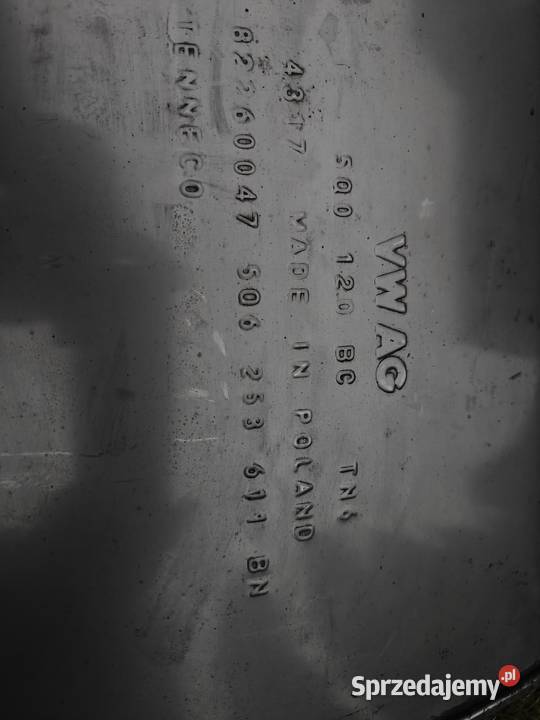 VW AG
5Q0 120 BC TN6
4317 MADE IN POLAND
82260047 5Q6 253 611 BN
TENNECO
Sprzedajemy.pl